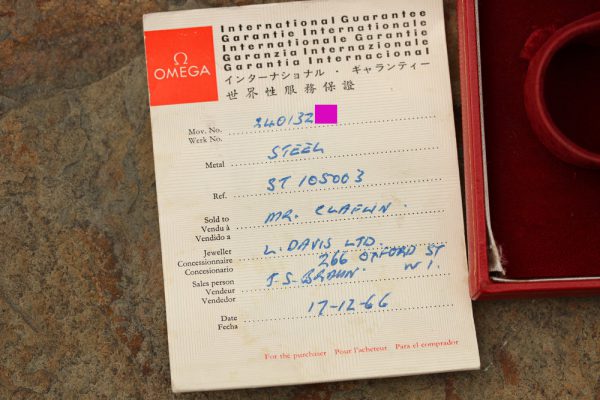 Ω
OMEGA
International Guarantee
Garantie Internationale
Internationale Garantie
Garanzia Internazionale
Garantía Internacional
インターナショナル・ギャランティー
世界性服務保證
Mov. No. 240132
Werk No.
Metal STEEL
Ref. ST 105003
Sold to MR. CLAFLIN.
Vendu à
Vendido a
Jeweller L. DAVIS LTD.
Concessionnaire 266 OXFORD ST
Concesionario W1.
Sales person J.S. BRAUN.
Vendeur
Vendedor
Date 17-12-66
Fecha
For the purchaser Pour l'acheteur Para el comprador